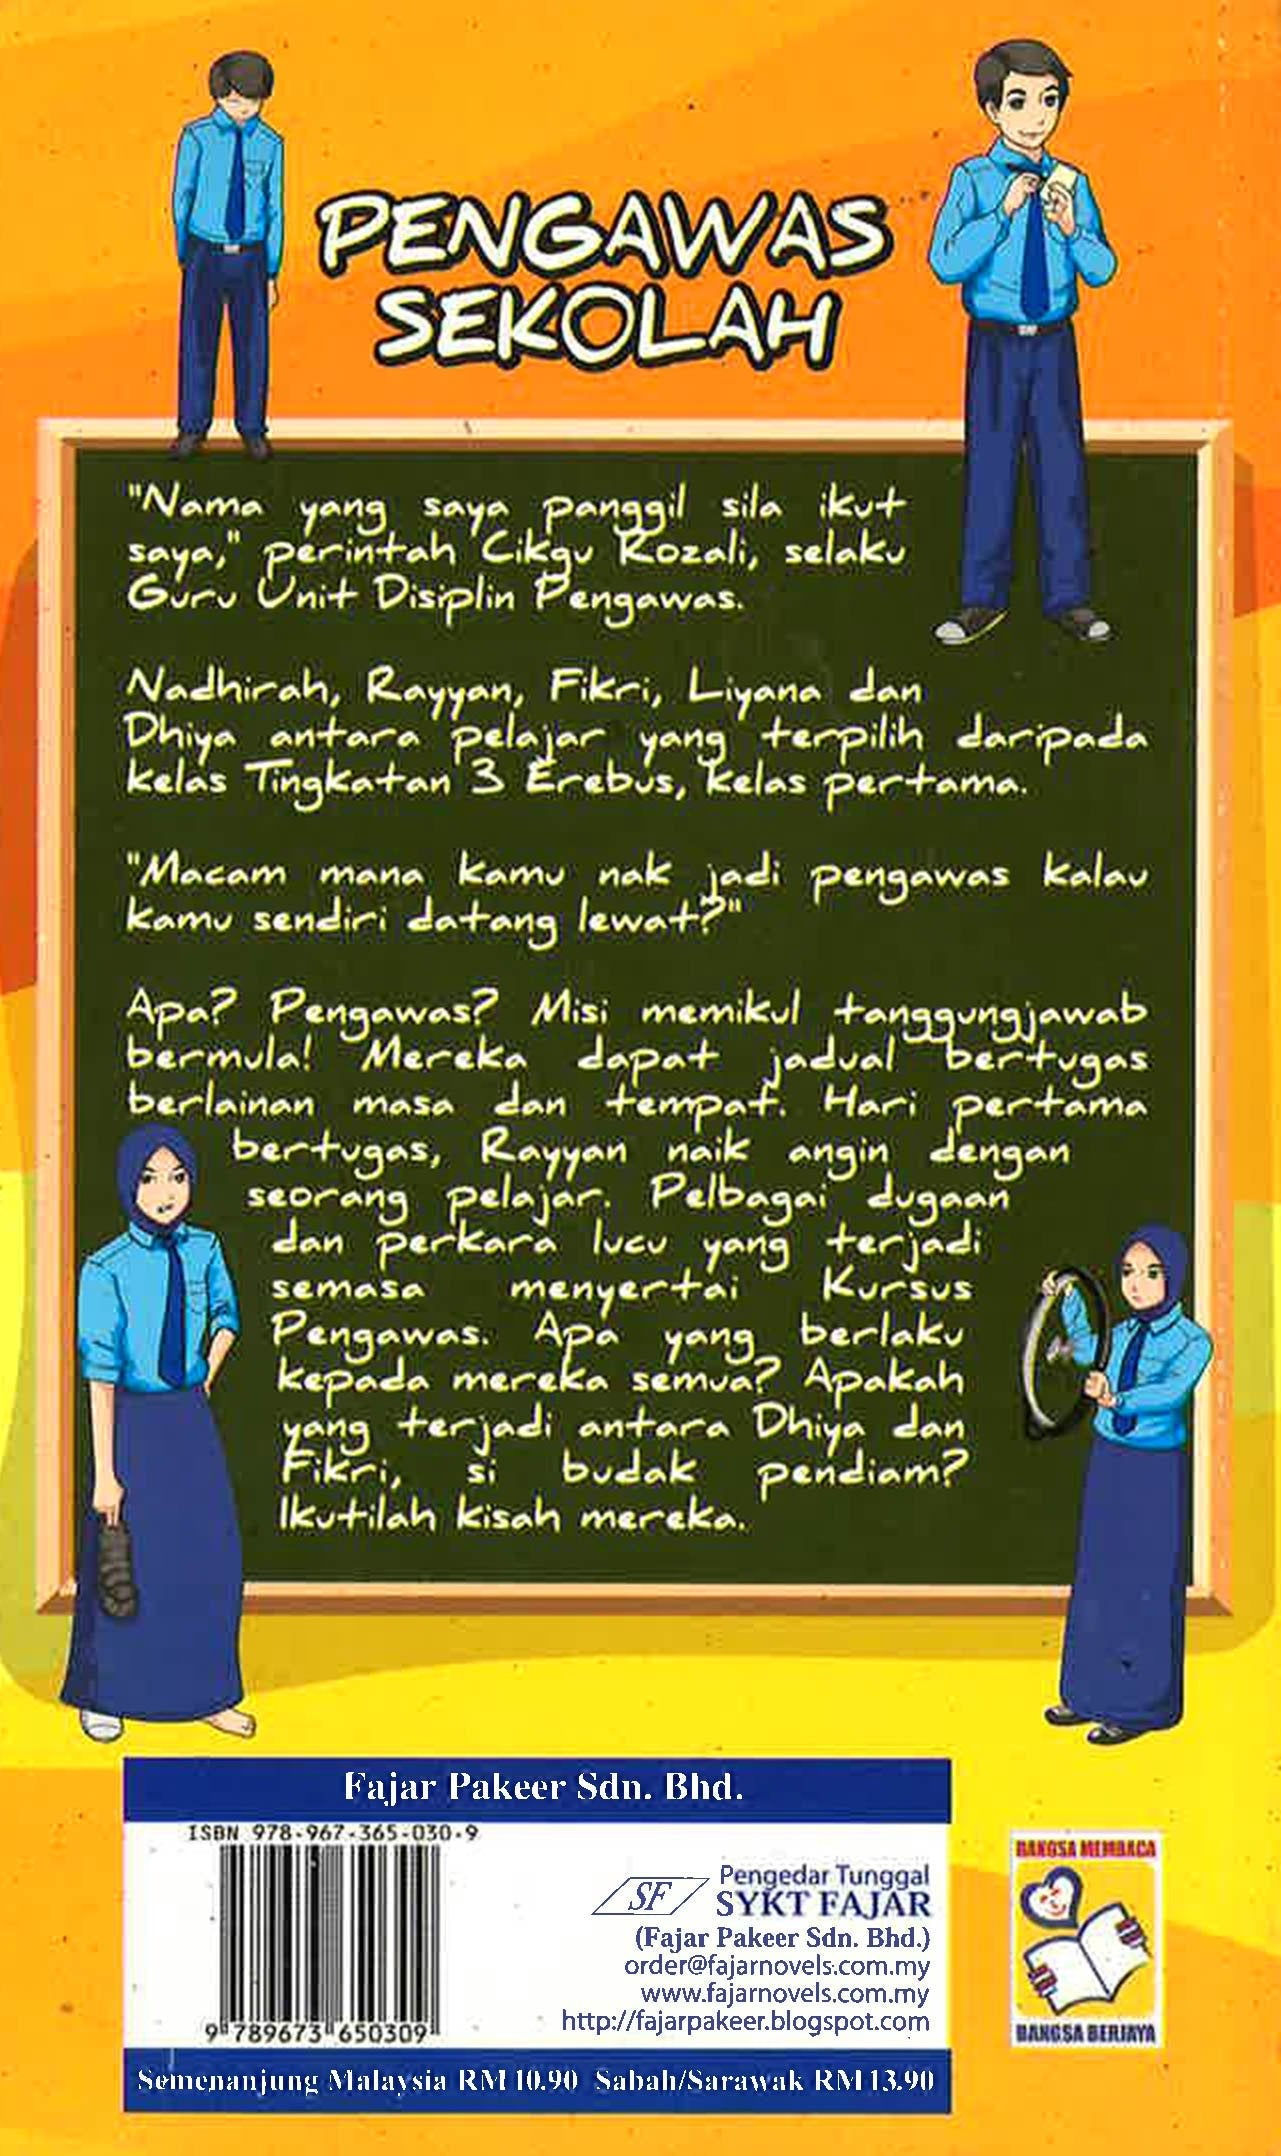 PENGAWAS
SEKOLAH
"Nama yang saya panggil sila ikut
saya," perintah Cikgu Rozali, selaku
Guru Unit Disiplin Pengawas.
Nadhirah, Rayyan, Fikri, Liyana dan
Dhiya antara pelajar yang terpilih daripada
kelas Tingkatan 3 Erebus, kelas pertama.
"Macam mana kamu nak jadi pengawas kalau
kamu sendiri datang lewat?"
Apa? Pengawas? Misi memikul tanggungjawab
bermula! Mereka dapat jadual bertugas
berlainan masa dan tempat. Hari pertama
bertugas, Rayyan naik angin dengan
seorang pelajar. Pelbagai dugaan
dan perkara lucu yang terjadi
semasa menyertai Kursus
Pengawas. Apa yang berlaku
kepada mereka semua? Apakah
yang terjadi antara Dhiya dan
Fikri, si budak pendiam?
Ikutilah kisah mereka.
Fajar Pakeer Sdn. Bhd.
ISBN 978-967-365-030-9
9 789673 650309
SF
Pengedar Tunggal
SYKT FAJAR
(Fajar Pakeer Sdn. Bhd.)
order@fajarnovels.com.my
www.fajarnovels.com.my
http://fajarpakeer.blogspot.com
Semenanjung Malaysia RM 10.90 Sabah/Sarawak RM 13.90
BANGSA MEMBACA
BANGSA BERJAYA